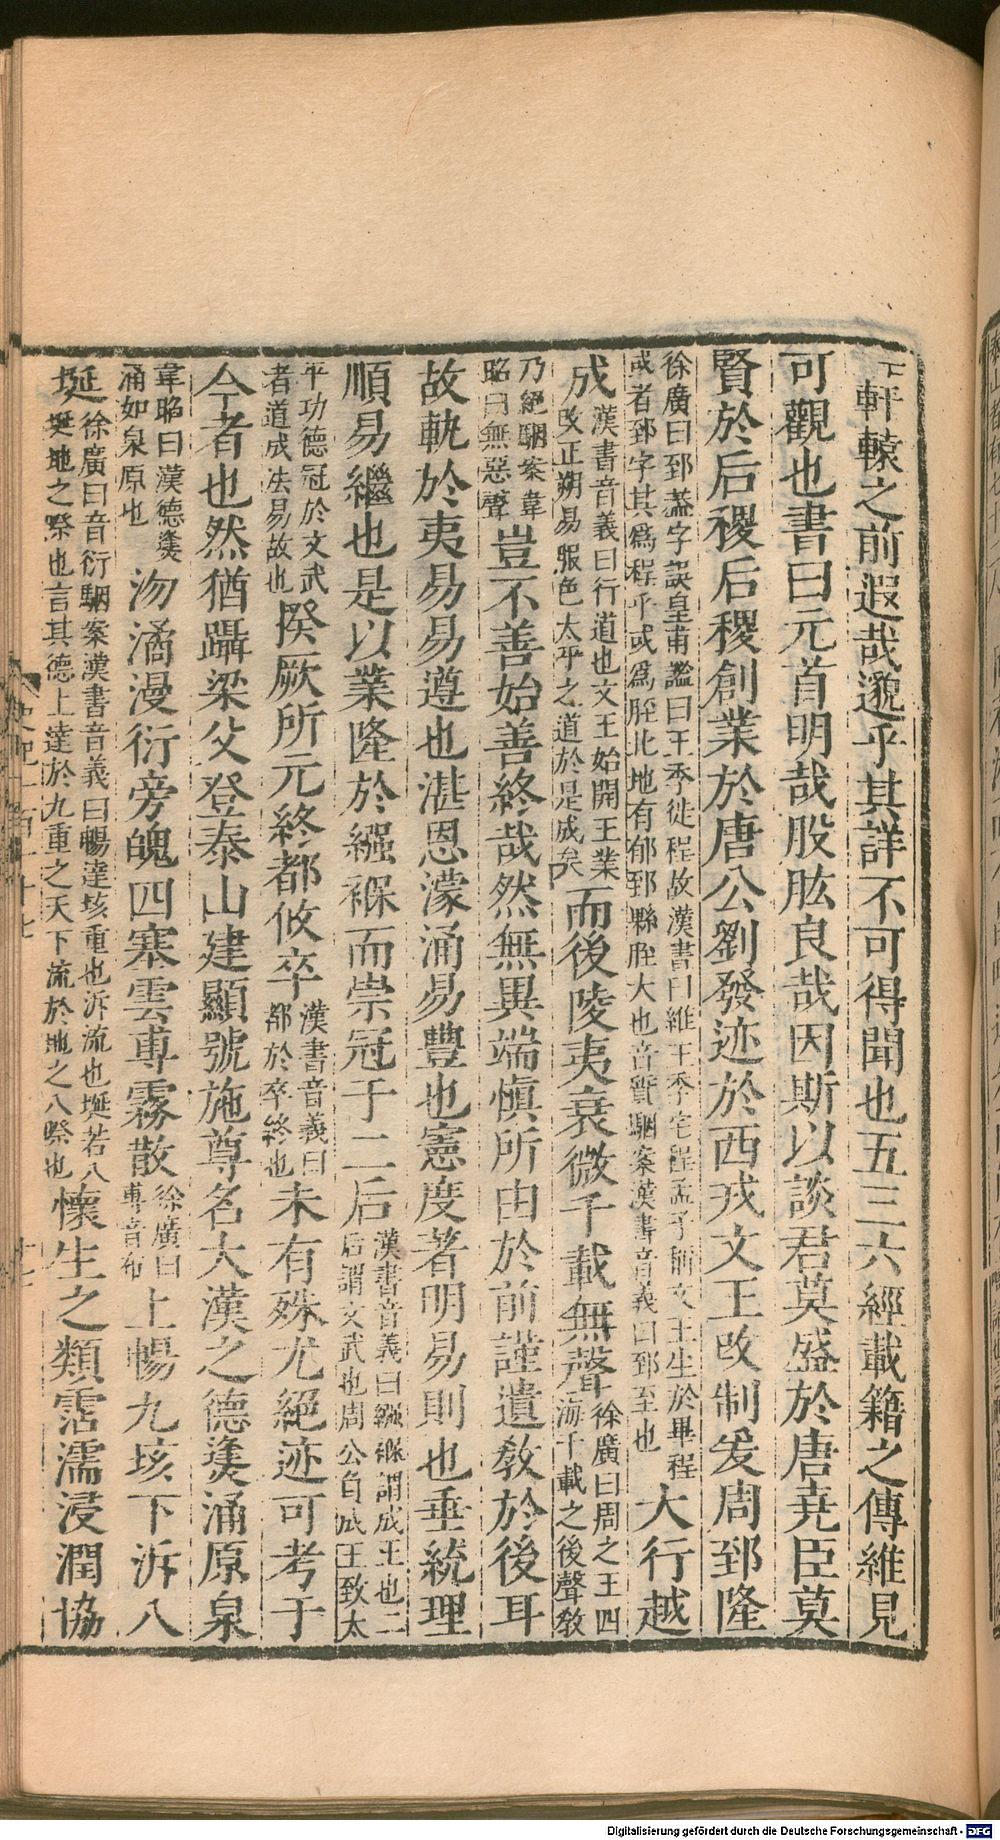 軒轅之前遐哉邈乎其詳不可得聞也五三六經載籍之傳維見
可觀也書曰元首明哉股肱良哉因斯以談君莫盛於唐堯臣莫
賢於后稷后稷創業於唐公劉發迹於西戎文王改制爰周郅隆
徐廣曰郅蓋字誤皇甫謐曰王季徙程故漢書曰維王季宅程孟子稱文王生於畢程
或者郅字其爲程乎或爲胵北地有郁郅縣胵大也音質駰案漢書音義曰郅至也
大行越
成
漢書音義曰行道也文王始開王業
改正朔易服色太平之道於是成矣
而後陵夷衰微千載無聲
徐廣曰周之王四
海千載之後聲敎
乃絕駰案韋
昭曰無惡聲
豈不善始善終哉然無異端愼所由於前謹遺敎於後耳
故軌於夷易易遵也湛恩濛涌易豐也憲度著明易則也垂統理
順易繼也是以業隆於繦褓而崇冠于二后
漢書音義曰繦褓謂成王也二
后謂文武也周公負成王致太
平功德冠於文武
者道成法易故也
揆厥所元終都攸卒
漢書音義曰
都於卒終也
未有殊尤絕迹可考于
今者也然猶躡梁父登泰山建顯號施尊名大漢之德㷭涌原泉
韋昭曰漢德㷭
涌如泉原也
沕潏漫衍旁魄四塞雲尃霧散
徐廣曰
尃音布
上暢九垓下泝八
埏
徐廣曰音衍駰案漢書音義曰暢達垓重也泝流也埏若八
埏地之際也言其德上達於九重之天下流於地之八際也
懷生之類霑濡浸潤協
史記一百一十七
Digitalisierung gefördert durch die Deutsche Forschungsgemeinschaft - DFG